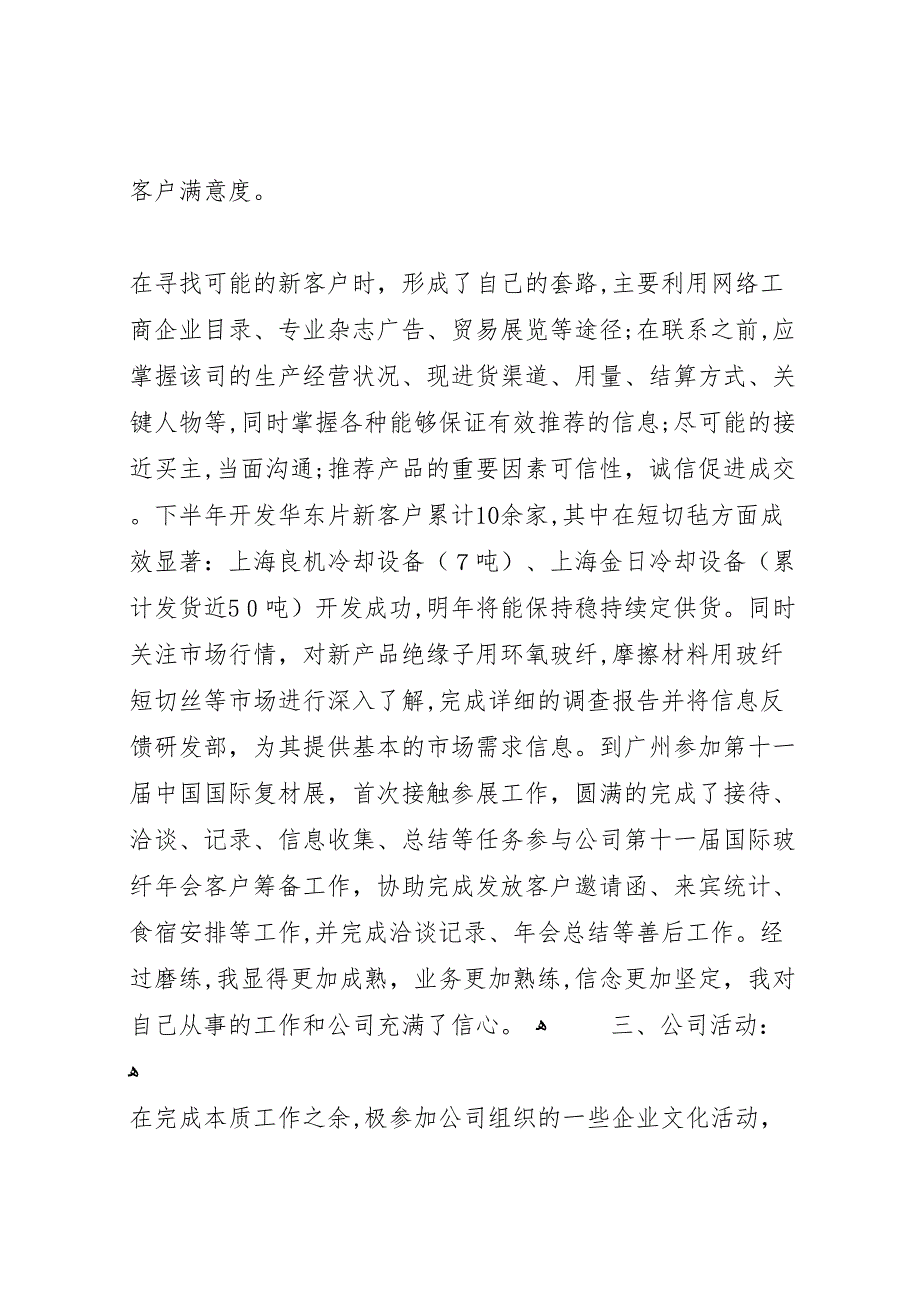 客户满意度。
在寻找可能的新客户时，形成了自己的套路,主要利用网络工
商企业目录、专业杂志广告、贸易展览等途径;在联系之前,应
掌握该司的生产经营状况、现进货渠道、用量、结算方式、关
键人物等,同时掌握各种能够保证有效推荐的信息;尽可能的接
近买主,当面沟通;推荐产品的重要因素可信性，诚信促进成交
。下半年开发华东片新客户累计10余家,其中在短切毡方面成
效显著：上海良机冷却设备（７吨）、上海金日冷却设备（累
计发货近5０吨）开发成功,明年将能保持稳持续定供货。同时
关注市场行情，对新产品绝缘子用环氧玻纤,摩擦材料用玻纤
短切丝等市场进行深入了解,完成详细的调查报告并将信息反
馈研发部，为其提供基本的市场需求信息。到广州参加第十一
届中国国际复材展，首次接触参展工作，圆满的完成了接待、
洽谈、记录、信息收集、总结等任务参与公司第十一届国际玻
纤年会客户筹备工作，协助完成发放客户邀请函、来宾统计、
食宿安排等工作,并完成洽谈记录、年会总结等善后工作。经
过磨练,我显得更加成熟，业务更加熟练,信念更加坚定，我对
自己从事的工作和公司充满了信心。 ﻫ 三、公司活动：
ﻫ
在完成本质工作之余,极参加公司组织的一些企业文化活动，